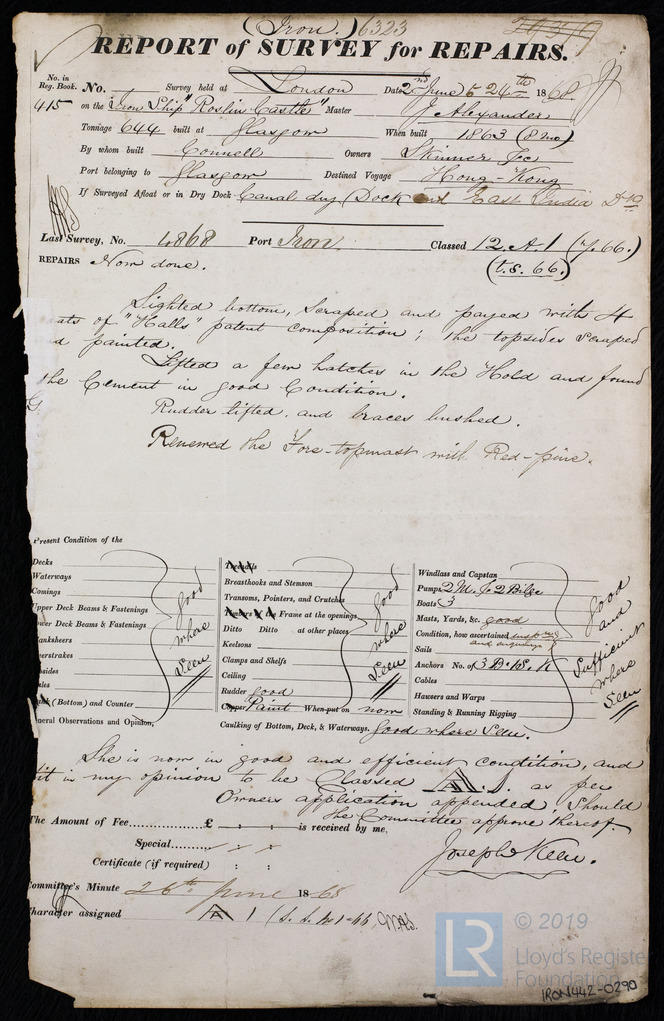 (Iron.) 6323
REPORT of SURVEY for REPAIRS.
No. in Reg. Book. No. Survey held at London Date 2nd June & 24th 1868
415 on the Iron Ship "Roslin Castle" Master J Alexander
Tonnage 644 built at Glasgow When built 1863 (8 mo)
By whom built Connell Owners Skinner &c
Port belonging to Glasgow Destined Voyage Hong-Kong
If Surveyed Afloat or in Dry Dock Canal dry Dock and East India Do
Last Survey, No. 4868 Port Iron. Classed 12.A.1 (7.66.)
REPAIRS Now done. (t.s. 66.)
Sighted bottom, scraped and payed with 4
ats of "Halls" patent composition; the topsides scraped
d painted.
Lifted a few hatches in the Hold and found
the Cement in good Condition.
Rudder lifted. and braces bushed.
Renewed the Fore-topmast with Red-pine.
Present Condition of the
Decks
Waterways
Comings
Upper Deck Beams & Fastenings
ower Deck Beams & Fastenings
lanksheers
erstrakes
sides
les
(Bottom) and Counter
good where Seen
neral Observations and Opinion,
Treenails
Breasthooks and Stemson
Transoms, Pointers, and Crutches
the Frame at the openings
Ditto Ditto at other places
Keelsons
Clamps and Shelfs
Ceiling
Rudder good
Copper Paint When put on now
good where Seen
Caulking of Bottom, Deck, & Waterways. Good where Seen.
Windlass and Capstan
Pumps 2 M. & 2 Bilge
Boats 3
Masts, Yards, &c. good
Condition, how ascertained inspn and enquiry
Sails
Anchors No. of 3 B. 1 S. K
Cables
Hawsers and Warps
Standing & Running Rigging
Good and Sufficient where Seen
She is now in good and efficient condition, and
it is my opinion to be Classed A.1. as per
Owners application appended, Should
the Committee approve thereof.
The Amount of Fee............... £ : : is received by me,
Special.........
Certificate (if required) : :
Joseph Keen.
Committee's Minute 26th June 1868
Character assigned A 1
© 2019
LR
Lloyd's Register
Foundation
IRON442-0290